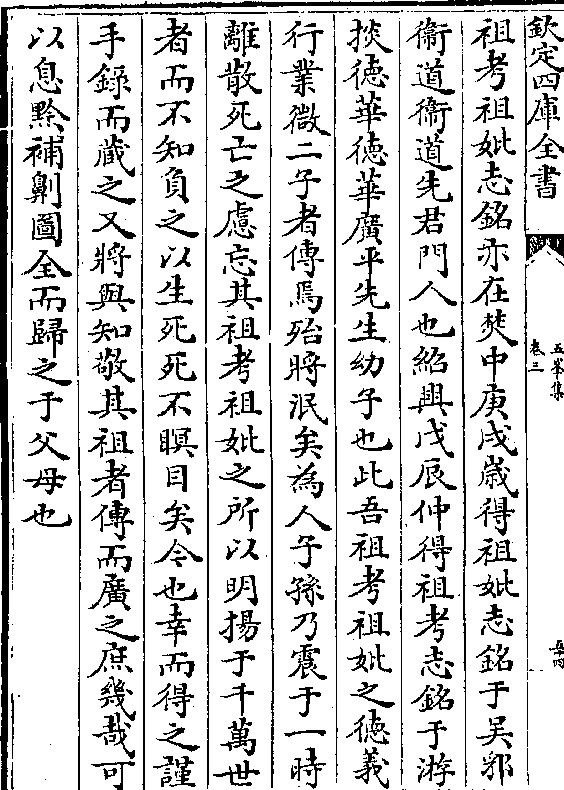 欽定四庫全書
五峯集
卷三
祖考祖妣志銘亦在焚中庚戌歲得祖妣志銘于吳郛
衞道衞道先君門人也紹興戊辰仲得祖考志銘于游
掞德華德華廣平先生幼子也此吾祖考祖妣之德義
行業微二子者傳焉殆將泯矣為人子孫乃震于一時
離散死亡之慮忘其祖考祖妣之所以明揚于千萬世
者而不知負之以生死死不瞑目矣今也幸而得之謹
手錄而藏之又將與知敬其祖者傳而廣之庶幾哉可
以息黥補劓圖全而歸之于父母也